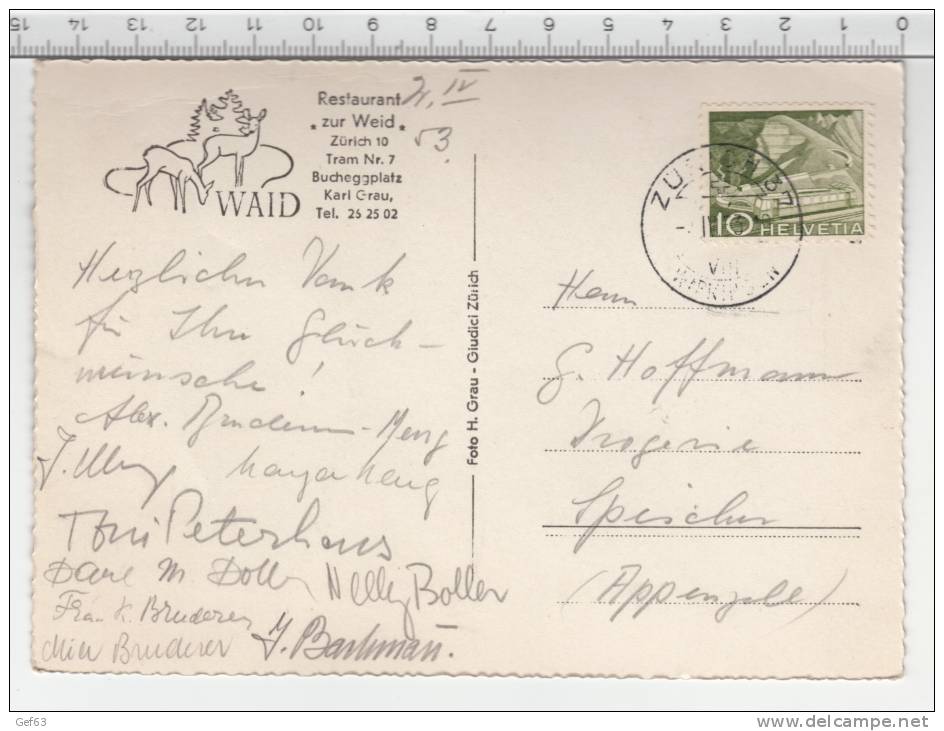 15 14 13 12 11 10 9 8 7 6 5 4 3 2 1 0
WAID
Restaurant
„zur Weid„
Zürich 10
Tram Nr. 7
Bucheggplatz
Karl Grau,
Tel. 26 25 02
IV
53.
Herzlichen Dank
für Ihre Glück-
wünsche!
Alex. Bruderer-Meng
Toni Peterhans
Nelly Boller
Frau K. Bruderer
Bruderer
Foto H. Grau - Giudici Zürich
10 HELVETIA
ZÜRICH 37
Herrn
G. Hoffmann
Drogerie
Speicher
(Appenzell)
Gef63
www.delcampe.net